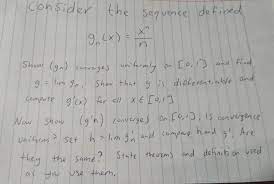 Consider the sequence defined
gₙ(x) = xⁿ/n
Show (gn) converges uniformly on [0,1] and find
g = lim gn. Show that g is differentiable and
compute g'(x) for all x ∈ [0,1]
Now show (g'n) converges on [0,1]. Is convergence
uniform? Set h = lim g'n and compare h and g'. Are
they the same? State theorems and definition used
as you use them.